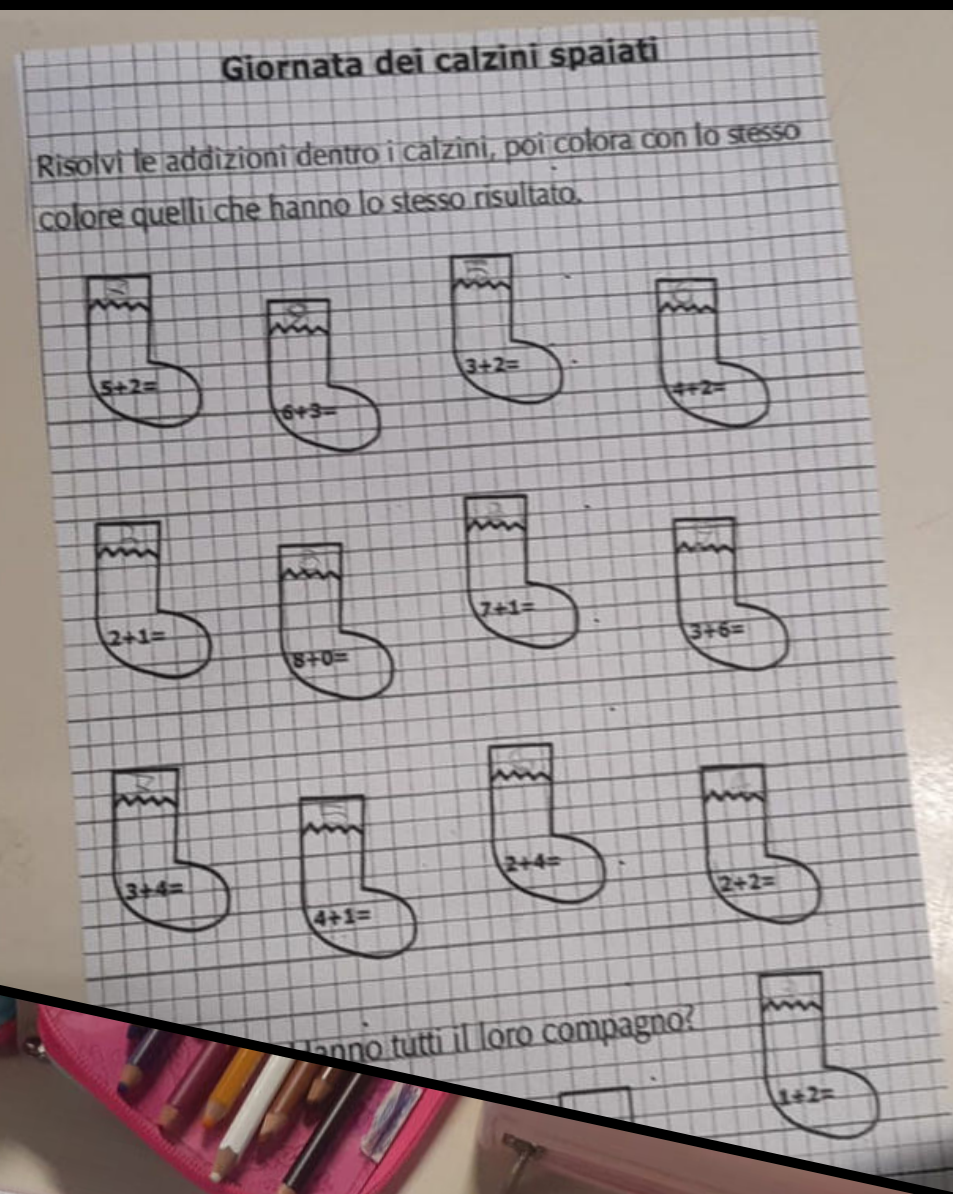 Giornata dei calzini spaiati
Risolvi le addizioni dentro i calzini, poi colora con lo stesso
colore quelli che hanno lo stesso risultato.
5+2=
6+3=
3+2=
4+2=
2+1=
8+0=
7+1=
3+6=
3+4=
4+1=
2+4=
2+2=
Hanno tutti il loro compagno?
1+2=